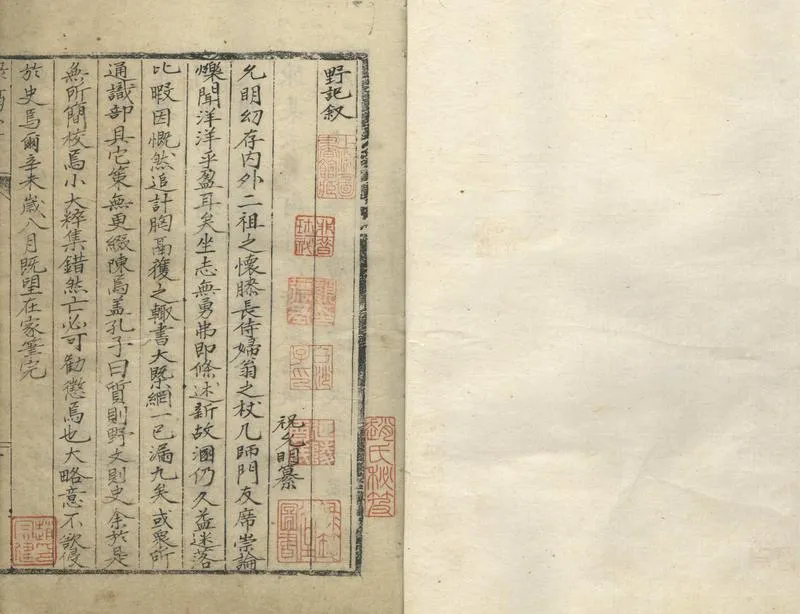 趙氏秘笈
野記叙
祝允明纂
允明幼存内外二祖之懷膝長侍婦翁之杖几師門友席崇論
爍聞洋洋乎盈耳矣坐志無勇弗即條述新故溷仍久益迷落
比暇因慨然追計胸鬲獲之輒書大槩網一已漏九矣或衆所
通識部具它策無更綴陳焉盖孔子曰質則野文則史余於是
無所簡校焉小大粹集錯然亡必可勸懲焉也大略意不欲侵
於史焉爾辛未歲八月既望在家筆完